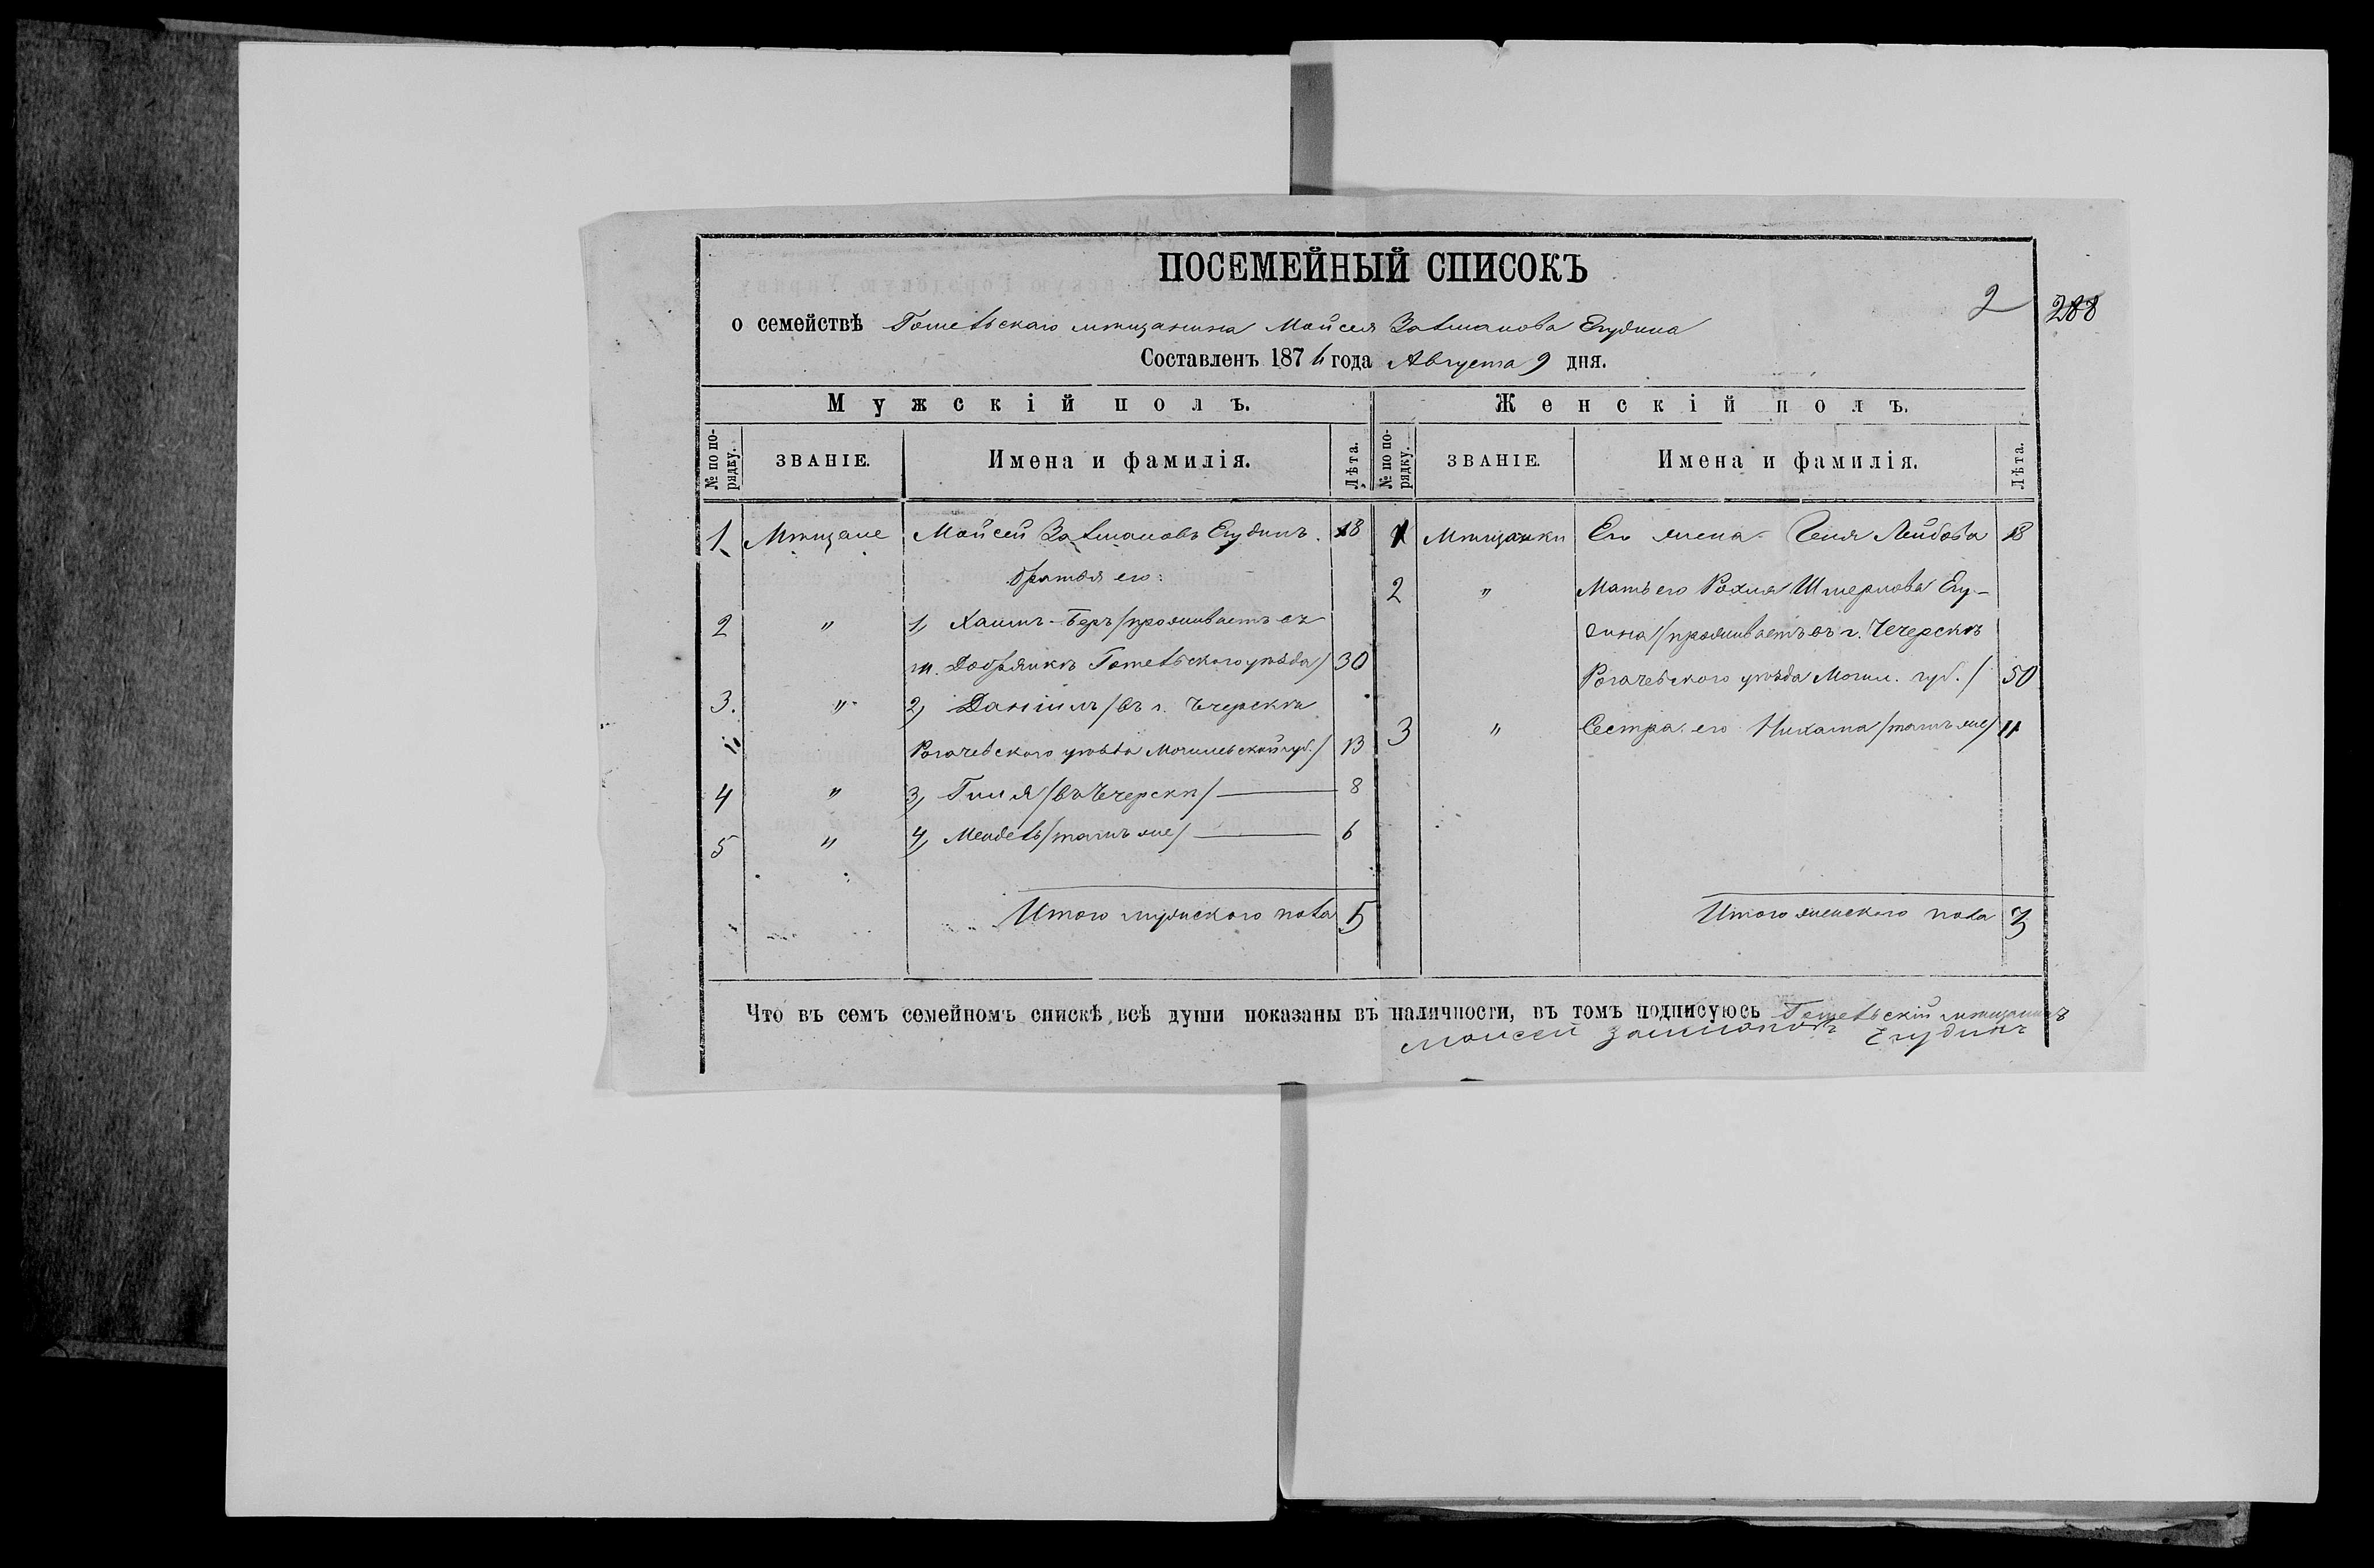 ПОСЕМЕЙНЫЙ СПИСОКЪ
2
288
о семействѣ Гомельскаго мѣщанина Мойсея Залманова Егудина
Составленъ 1874 года Августа 9 дня.
Мужскій полъ.
Женскій полъ.
№ по порядку. ЗВАНІЕ. Имена и фамилія. Лѣта. № по порядку. ЗВАНІЕ. Имена и фамилія. Лѣта.
1 Мѣщане Мойсей Залмановъ Егудинъ. 18
братья его:
2 " 1, Хаимъ-Беръ /проживаетъ въ
м. Добрянкѣ Гомельскаго уѣзда/ 30
3. " 2, Даніилъ /въ г. Чечерскѣ
Рогачевскаго уѣзда Могилевской губ./ 13
4 " 3, Гиля /въ Чечерскѣ/ 8
5 " 4, Мендель /тамъ же/ 6
Итого мужскаго пола 5
1 Мѣщанки Его жена Геня Лейбова 18
2 " Мать его Рохля Шмерлова Егу-
дина /проживаетъ въ г. Чечерскѣ
Рогачевскаго уѣзда Могил. губ./ 50
3 " Сестра его Нихама /тамъ же/ 11
Итого женскаго пола 3
Что въ семъ семейномъ спискѣ, всѣ души показаны въ наличности, въ томъ подписуюсь Гомельскій мѣщанинъ
Моисей Залмановъ Егудинъ